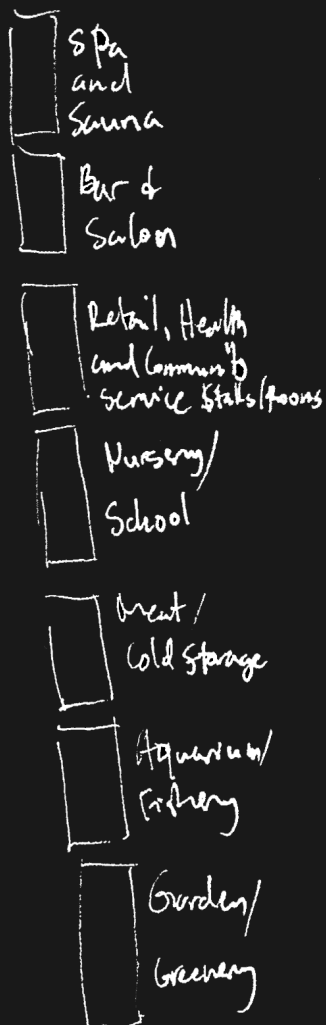 Spa
and
Sauna
Bar &
Saloon
Retail, Health
and Community
Service Stalls/Rooms
Nursery/
School
Meat/
Cold Storage
Aquarium/
Fishery
Garden/
Greenery